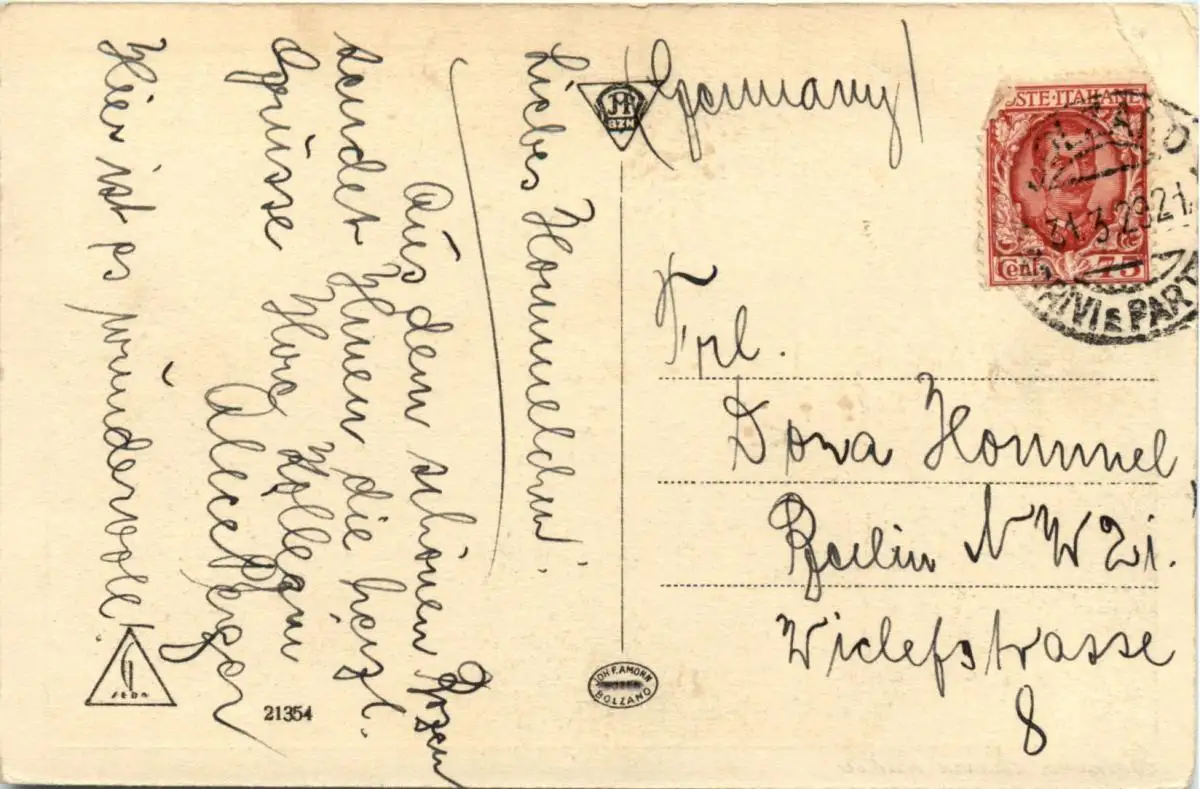 Liebes Hommelchen!
Aus dem schönen Bozen
sendet Ihnen die herzl.
Grüsse Ihre Kollegin
Alice Berger
Hier ist es wundervoll!
Germany!
JA
BZN
POSTE·ITALIANE
MILANO
31.3.29.21
ARRIVI E PARTENZE
Cent. 75
Frl.
Dora Hommel
Berlin NW 21.
Wiclefstrasse
8
JOH. F. AMONN
BOLZANO
SEDA
21354